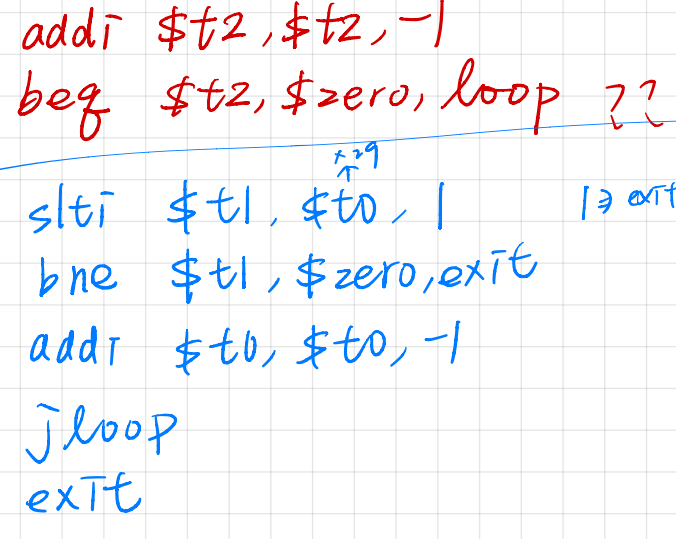 addi $t2, $t2, -1
beq $t2, $zero, loop ??
x29
slti $t1, $t0, 1
1 ⇒ exit
bne $t1, $zero, exit
addi $t0, $t0, -1
j loop
exit